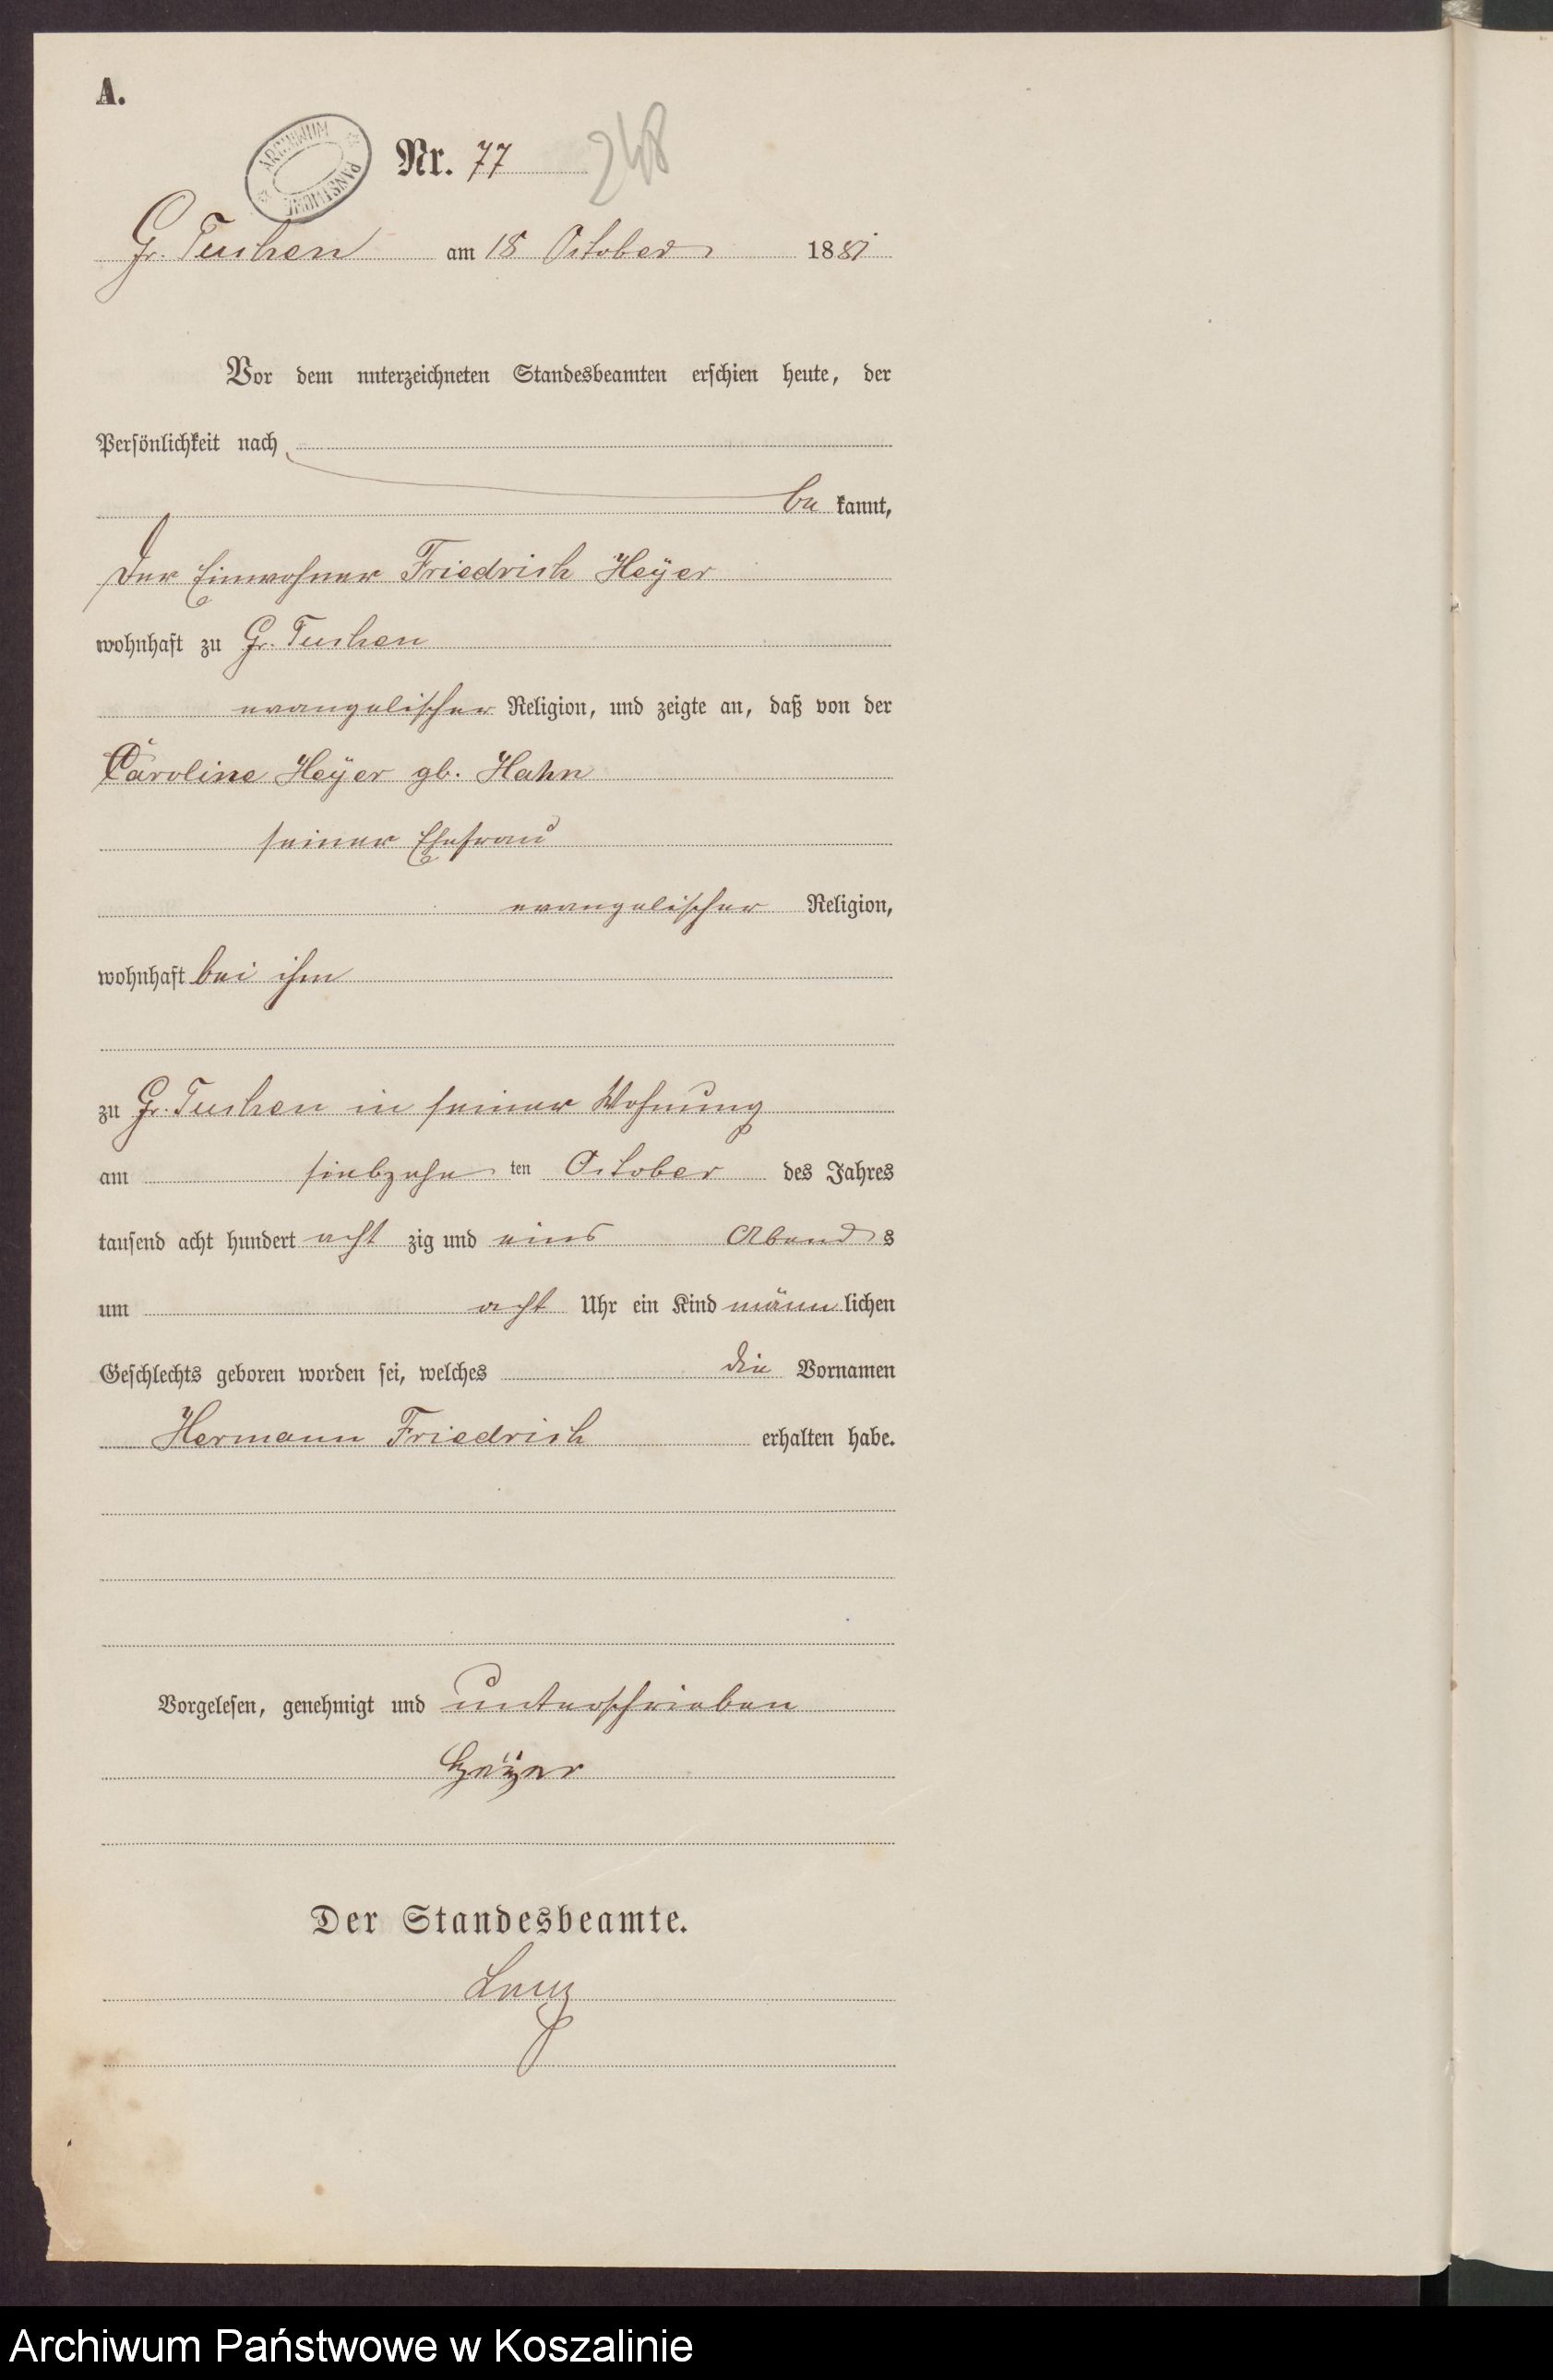 A.
ARCHIWUM PAŃSTWOWE
Nr. 77 248
Gr. Tuchen am 18 October 1881
Vor dem unterzeichneten Standesbeamten erschien heute, der
Persönlichkeit nach
be kannt,
der Einwohner Friedrich Heÿer
wohnhaft zu Gr. Tuchen
evangelischer Religion, und zeigte an, daß von der
Caroline Heÿer gb. Hahn
seiner Ehefrau
evangelischer Religion,
wohnhaft bei ihm
zu Gr. Tuchen in seiner Wohnung
am siebzehn ten October des Jahres
tausend acht hundert acht zig und eins Abend s
um acht Uhr ein Kind männ lichen
Geschlechts geboren worden sei, welches die Vornamen
Hermann Friedrich erhalten habe.
Vorgelesen, genehmigt und unterschrieben
Heÿer
Der Standesbeamte.
Archiwum Państwowe w Koszalinie